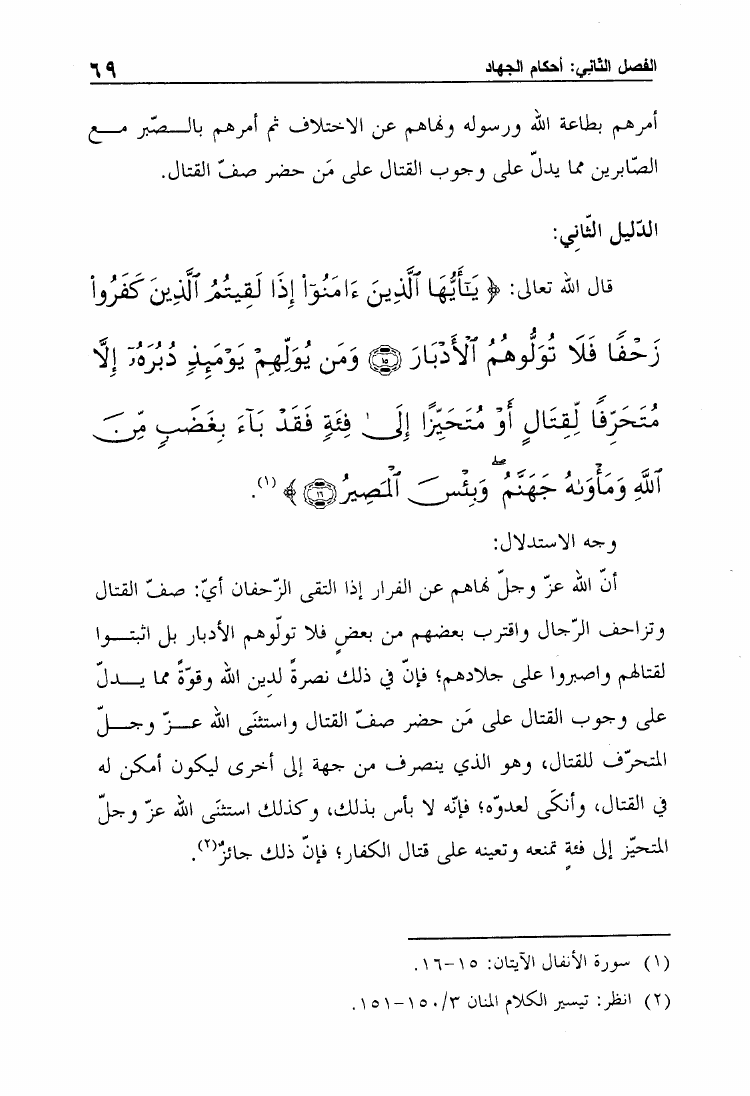 الفصل الثاني: أحكام الجهاد ٦٩
أمرهم بطاعة الله ورسوله ونهاهم عن الاختلاف ثم أمرهم بالـــصّبر مـــع
الصّابرين مما يدلّ على وجوب القتال على مَن حضر صفّ القتال.
الدّليل الثّاني:
قال الله تعالى: ﴿ يَـٰٓأَيُّهَا ٱلَّذِينَ ءَامَنُوٓا۟ إِذَا لَقِيتُمُ ٱلَّذِينَ كَفَرُوا۟
زَحْفًا فَلَا تُوَلُّوهُمُ ٱلْأَدْبَارَ ١٥ وَمَن يُوَلِّهِمْ يَوْمَئِذٍ دُبُرَهُۥٓ إِلَّا
مُتَحَرِّفًا لِّقِتَالٍ أَوْ مُتَحَيِّزًا إِلَىٰ فِئَةٍ فَقَدْ بَآءَ بِغَضَبٍ مِّنَ
ٱللَّهِ وَمَأْوَىٰهُ جَهَنَّمُ ۖ وَبِئْسَ ٱلْمَصِيرُ ١٦ ﴾ (١).
وجه الاستدلال:
أنّ الله عزّ وجلّ نهاهم عن الفرار إذا التقى الزّحفان أيّ: صفّ القتال
وتزاحف الرّجال واقترب بعضهم من بعضٍ فلا تولّوهم الأدبار بل اثبتـــوا
لقتالهم واصبروا على جلادهم؛ فإنّ في ذلك نصرةً لدين الله وقوّةً مما يـــدلّ
على وجوب القتال على مَن حضر صفّ القتال واستثنَى الله عـــزّ وجـــلّ
المتحرّف للقتال، وهو الذي ينصرف من جهة إلى أخرى ليكون أمكن له
في القتال، وأنكَى لعدوّه؛ فإنّه لا بأس بذلك، وكذلك استثنَى الله عزّ وجلّ
المتحيّز إلى فئةٍ تمنعه وتعينه على قتال الكفار؛ فإنّ ذلك جائزٌ(٢).
(١) سورة الأنفال الآيتان: ١٥-١٦.
(٢) انظر: تيسير الكلام المنان ٣/ ١٥٠-١٥١.